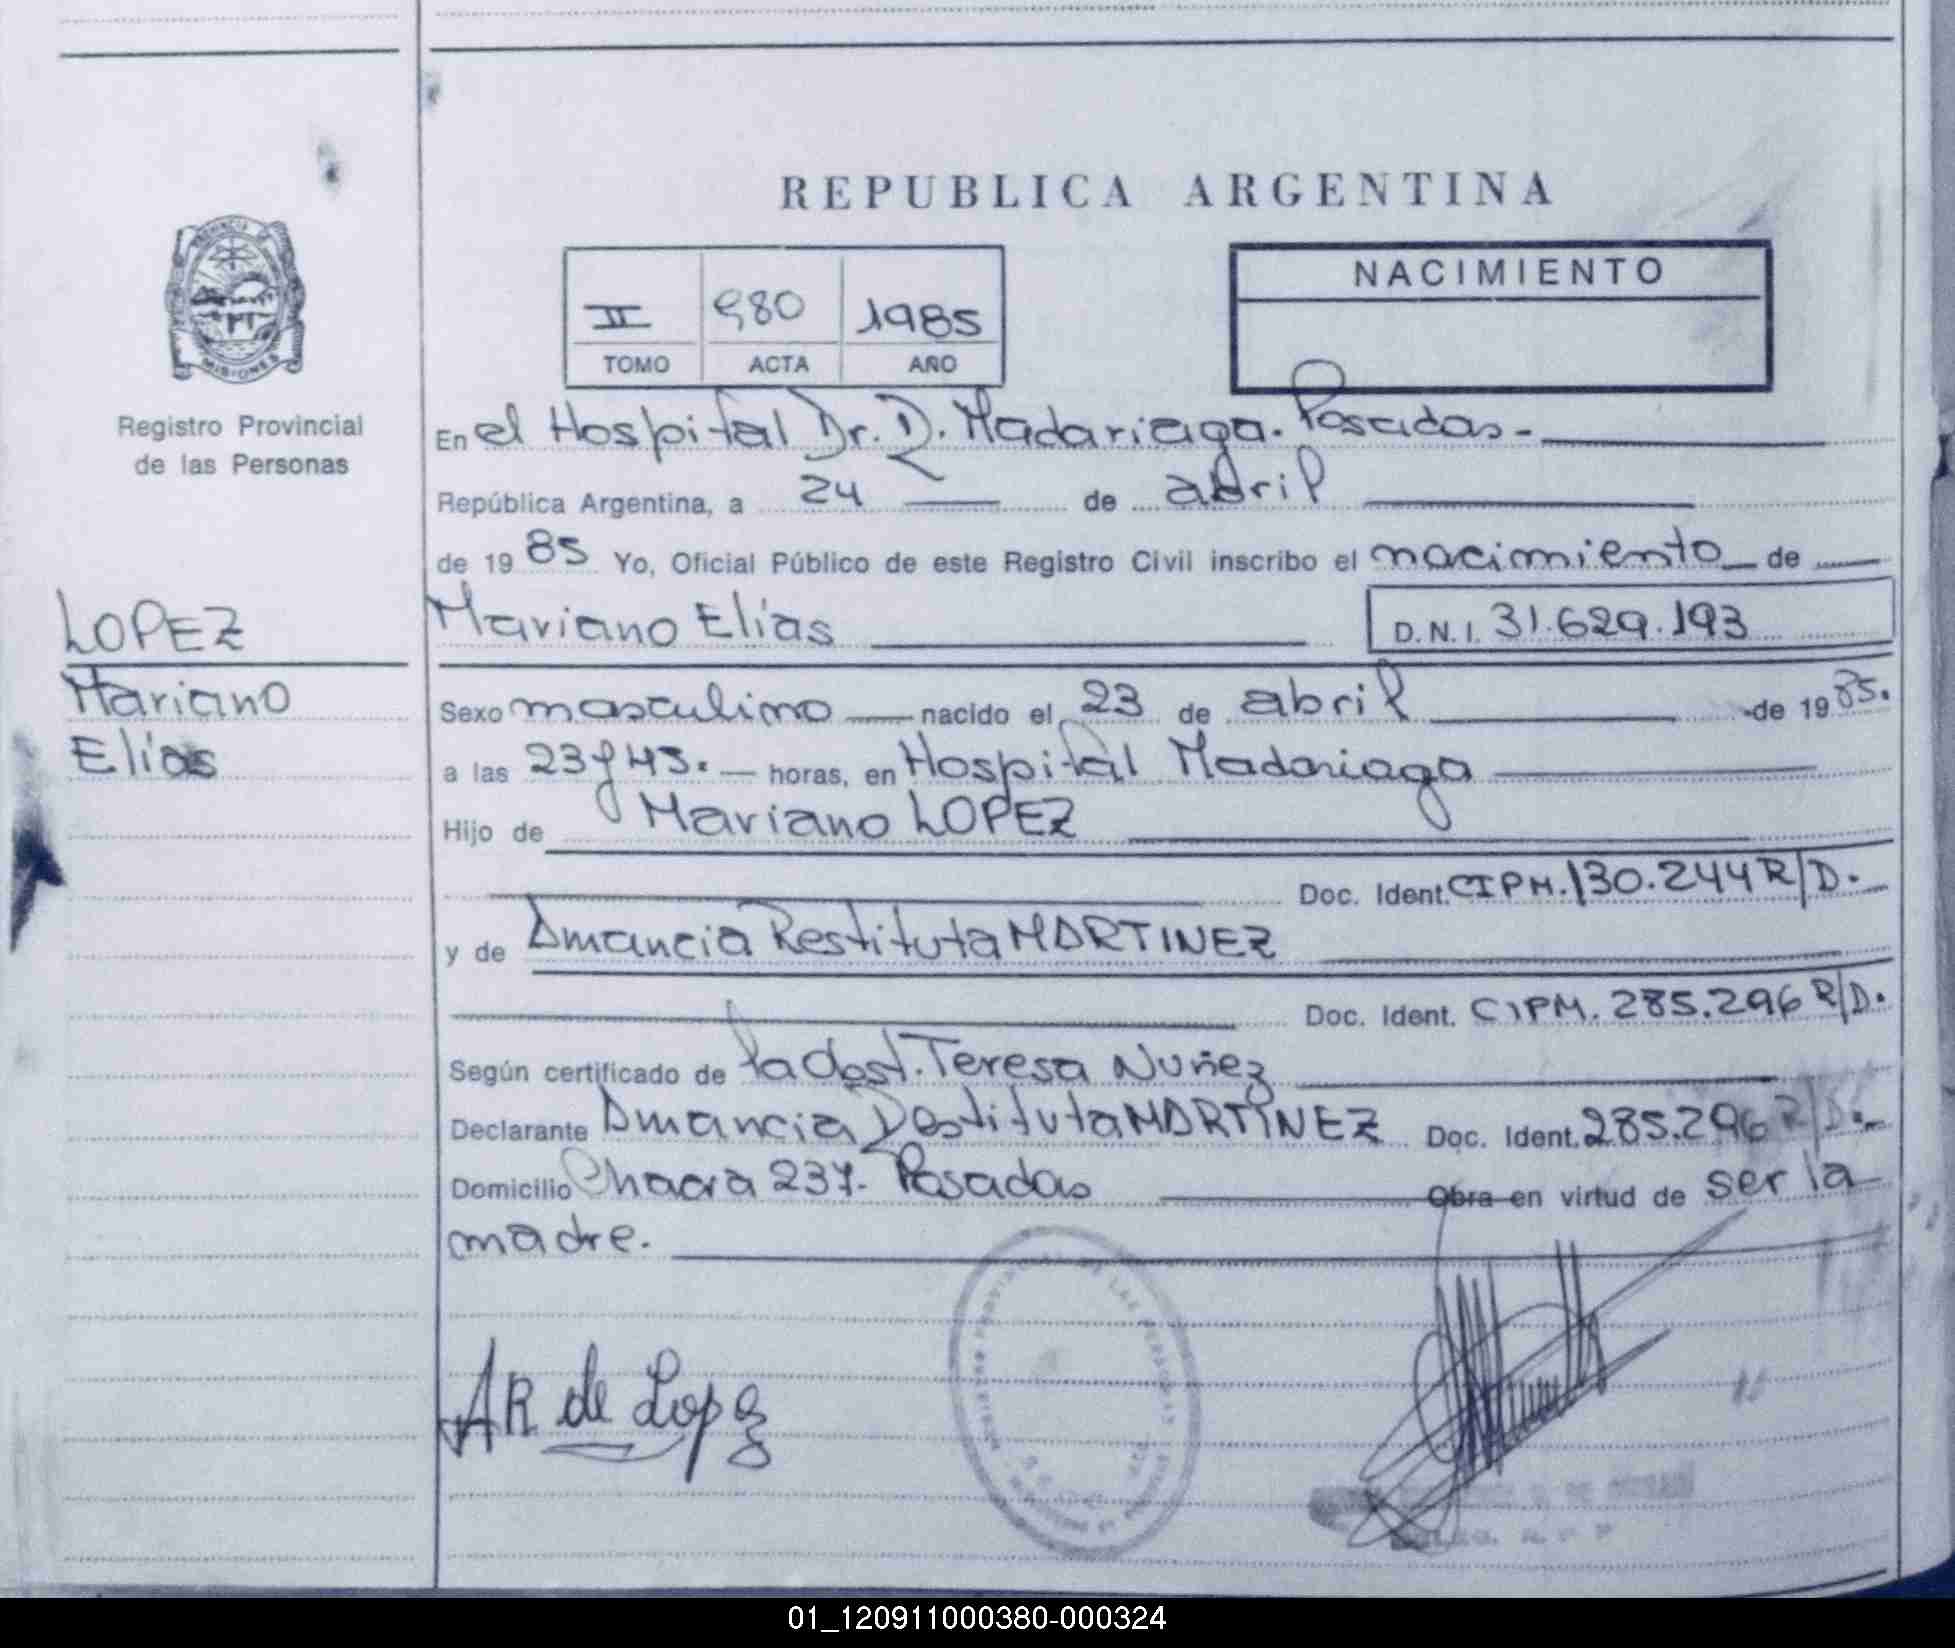 REPUBLICA ARGENTINA
PROVINCIA DE
MISIONES
Registro Provincial
de las Personas
II 980 1985
TOMO ACTA AÑO
NACIMIENTO
En el Hospital Dr. D. Madariaga. Posadas-
República Argentina, a 24 de abril
de 19 85 Yo, Oficial Público de este Registro Civil inscribo el nacimiento de
Mariano Elías D.N.I. 31.629.193
LOPEZ
Mariano
Elías
Sexo masculino nacido el 23 de abril de 19 85.
a las 23 y 43. horas, en Hospital Madariaga
Hijo de Mariano LOPEZ
Doc. Ident. CIPM. 130.244 R/D.
y de Amancia Restituta MARTINEZ
Doc. Ident. CIPM. 285.296 R/D.
Según certificado de la Obst. Teresa Nuñez
Declarante Amancia Restituta MARTINEZ Doc. Ident. 285.296 R/D.
Domicilio Chacra 237. Posadas Obra en virtud de ser la
madre.
AR de Lopez
01_120911000380-000324